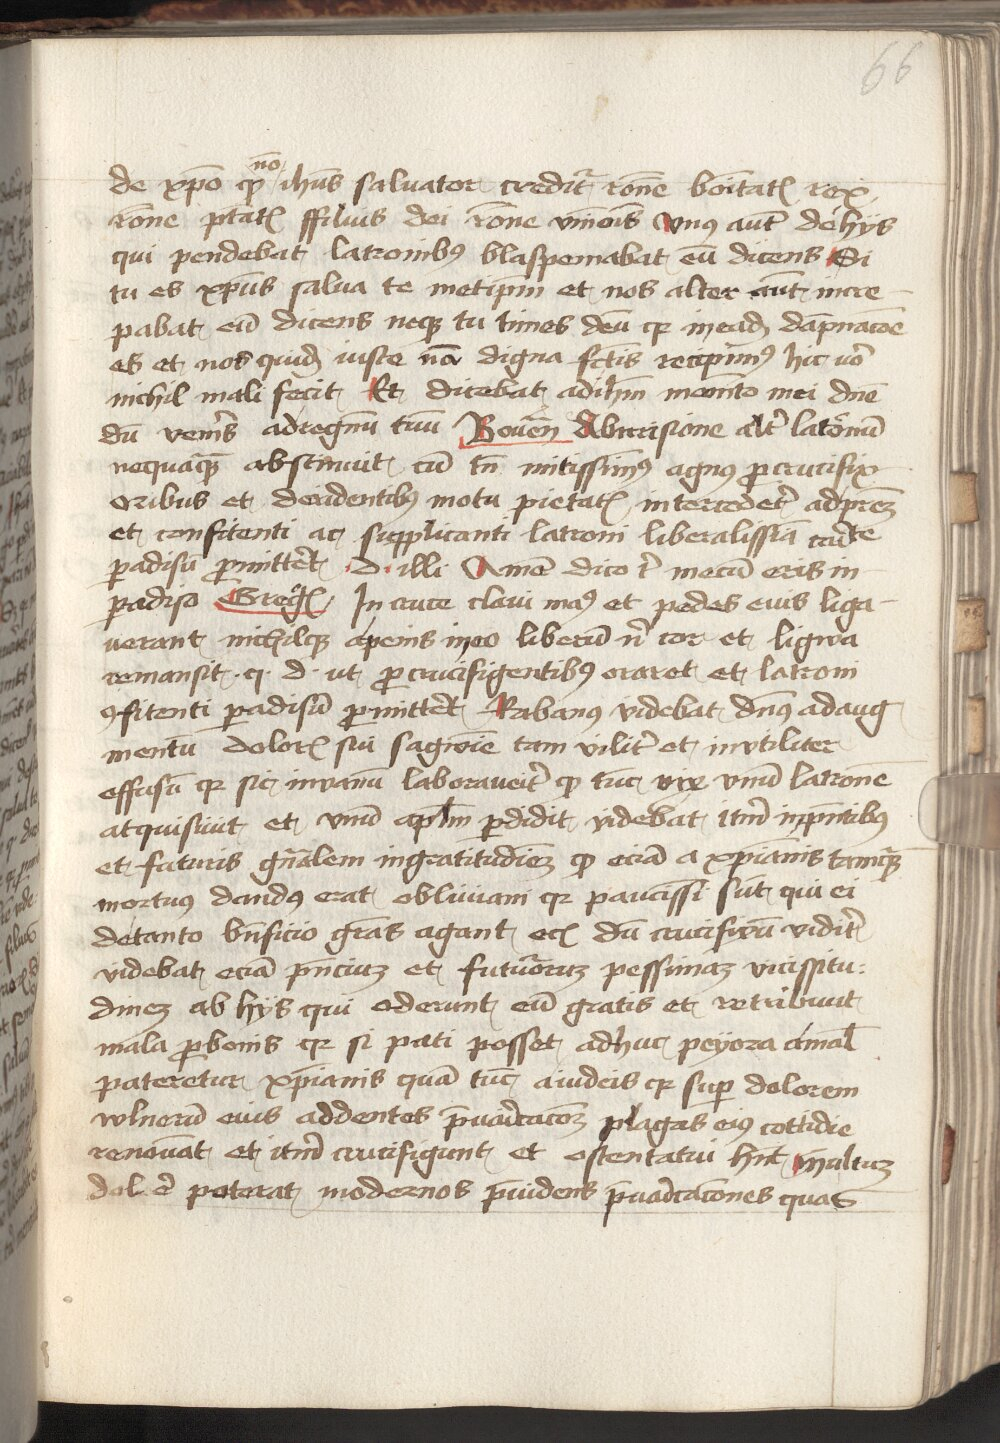 66
de xp̄o qꝫ n̄o ih̄us saluator credit᷑ rōne bōitatꝭ rex
rōne ptātꝭ ffilius dei rōne vniōis Vnus aut̄ de hijs
qui pendebat latronibꝰ blaspemabat eū dicens Si
tu es xp̄us salua te metip̄m et nos alter aūt incre
pabat eū dicens neqꝫ tu times deū qꝛ in eadꝫ dāpnacōe
es et nos quidꝫ iuste nā digna fc̄tis recipimꝰ hic vo᷑
nichil mali fecit Et dicebat ad ih̄m memēto mei dn̄e
dū ven̄is ad regnū tuū Bouēn Ab irrisione alt᷑ latronū
nequaqꝫ abstinuit cū tn̄ mitissimꝰ agnus ꝓ crucifix
oribus et deridentibꝰ motu pietatꝭ intercedet᷑ ad pr̄em
et confitenti ac supplicanti latroni liberalissīa caīte
ꝑadisū ꝓmitteret ·D· illi Amē dico t᷑ mecū eris in
ꝑadiso Gregꝭ In cruce claui maꝰ et pedes eius liga
uerant nichilqꝫ a penis in eo liberū n᷑ cor et ligwa
remansit ·q· d· ut ꝓ crucifigentibꝰ oraret et latroni
ꝯfitenti ꝑadisū ꝓmitteret Rabanꝰ videbat dn̄s ad aug
mentū dolorꝭ sui sagwīe tam vilit᷑ et invtiliter
effusū qꝛ sic in vanū laborauerit᷑ qꝫ tūc vix vnū latronē
atquisiuit et vnū apl̄m ꝑdidit videbat itm̄ in pn̄tibꝰ
et futuris gn̄alem ingratitudiēꝫ qꝫ eciā a xp̄ianis tamqꝫ
mortuꝰ dandꝰ erat obliuiani qꝛ paucissi sūt qui ei
de tanto bn̄ficio grās agant ecꝭ dū crucifixū vidit᷑
videbat eciā pn̄ciuꝫ et futuroruꝫ pessimaꝫ vicissitu:
dineꝫ ab hijs qui oderunt eū gratis et retribuut
mala ꝓ bonis qꝛ si pati posset adhuc peyora a mal
pateretur xp̄ianis quā tūc a iudeis qꝛ sup̄ dolorem
wlnerū eius addentes p̄uaricacōꝫ plagas eiꝰ cottidie
renouāt et itm̄ crucifigunt et ostentatui hn̄t Multuꝫ
dolē poterat modernos p̄uidens p̄uaricacōnes quas